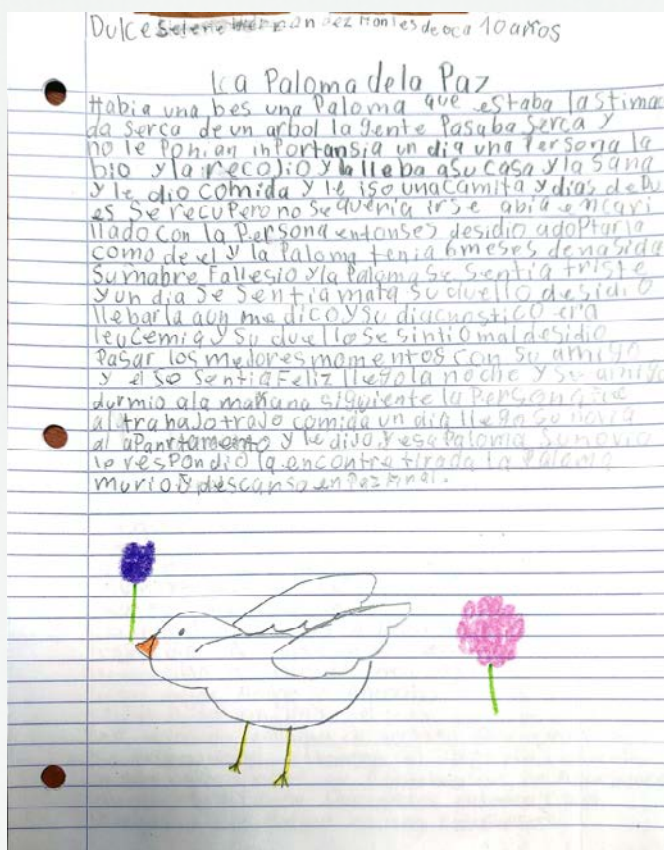 Dulce Selene Hernandez Montes de oca 10 años
La Paloma dela Paz
Habia una bes una Paloma que estaba lastima
da serca de un arbol la gente Pasaba serca y
no le Ponian inPortansia un dia una Persona la
bio y la recojio y la lleba asu casa y la sana
y le dio comida y le iso una camita y dias desPu
es se recuPero no se queria irse abia encari
llado con la Persona entonses desidio adoPtarla
como de el y la Paloma tenia 6 meses de nasida
su mabre Fallesio y la Paloma se sentia triste
y un dia se sentia mala su duello desidio
llebarla a un medico y su diacnostico era
leucemia y su duello se sintio mal desidio
Pasar los mejores momentos con su amigo
y el se sentia Feliz llego la noche y su amigo
durmio ala mañana siguiente la Persona fue
al trabajo trajo comida un dia llego su novia
al aPartamento y le dijo y esa Paloma su novio
le resPondio la encontre tirada la Paloma
murio y descanso en Paz Final.